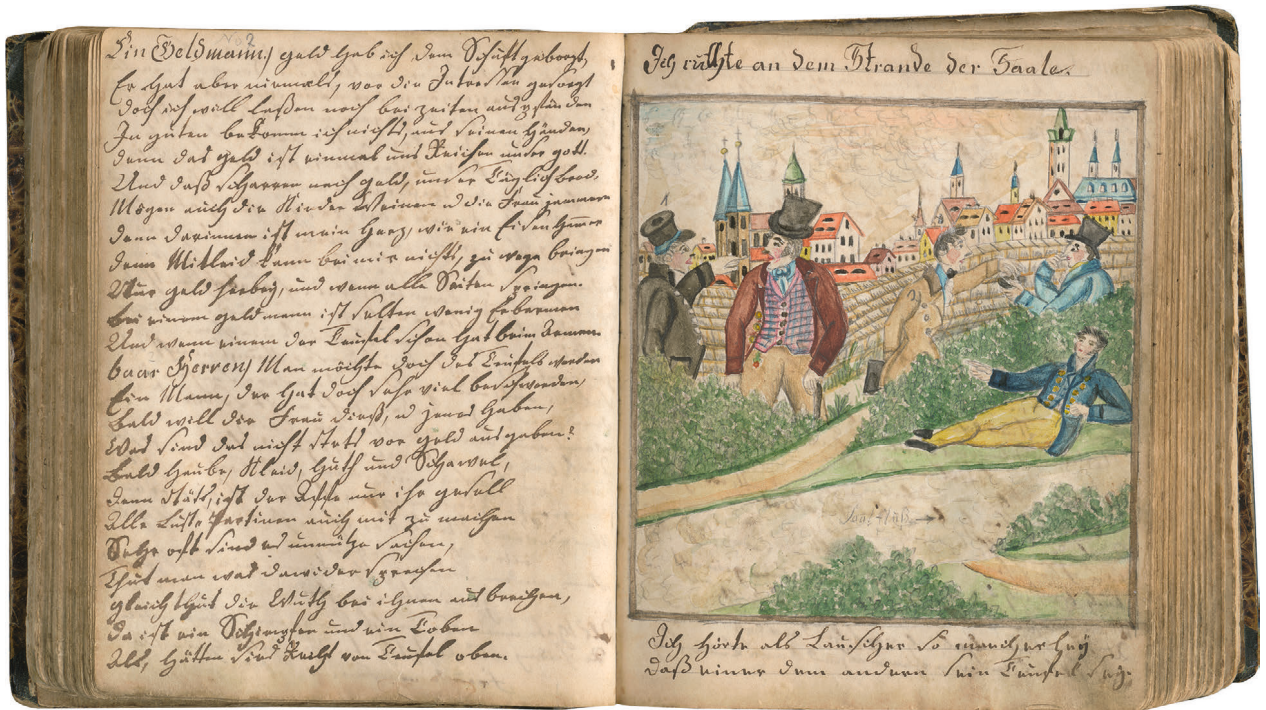 No 2
Ein Geldmann) geld hab ich dem Schuft geborgt,
Er hat aber niemals, vor die Intressen gesorgt
doch ich will laßen noch bei zeiten auspfänden
In guten bekomm ich nichts, aus seinen Händen,
denn das geld ist einmal uns Reichen unser gott.
Und daß scharren nach geld, unser Täglich brod.
Mögen auch die Kinder Weinen u die Frau jammern
denn darinnen ist mein Herz, wie ein Eisen Hammer
denn Mitleid kann bei mir nichts, zu wege bringen
Nur geld herbey, und wenn alle Seiten springen.
bei einem geldmann ist selten wenig Erbarmen
Und wenn einem der Teufel schon hat beim
baar Herren) Man möchte doch des Teufels werden
Ein Mann, der hat doch sehr viel beschwerden,
bald will die Frau dieß, u jenes haben,
Was sind das nicht stets vor geld ausgaben?
bald Haube, Kleid, Huth und Schawel,
denn stäts, ist der Affe nur ihr gesell
Alle Lust Partinen auch mit zu machen
Sehr oft sind es unnütze sachen,
Thut man was dawider sprechen
gleich thut die Wuth bei ihnen aus brechen,
da ist ein Schimpfen und ein Toben
Als, hätten sie's Recht vom Teufel oben.
Ich ruhte an dem Strande der Saale.
1
Saal
Ich hörte als Lauscher so mancherley
daß einer dem andern sein Teufel sey.